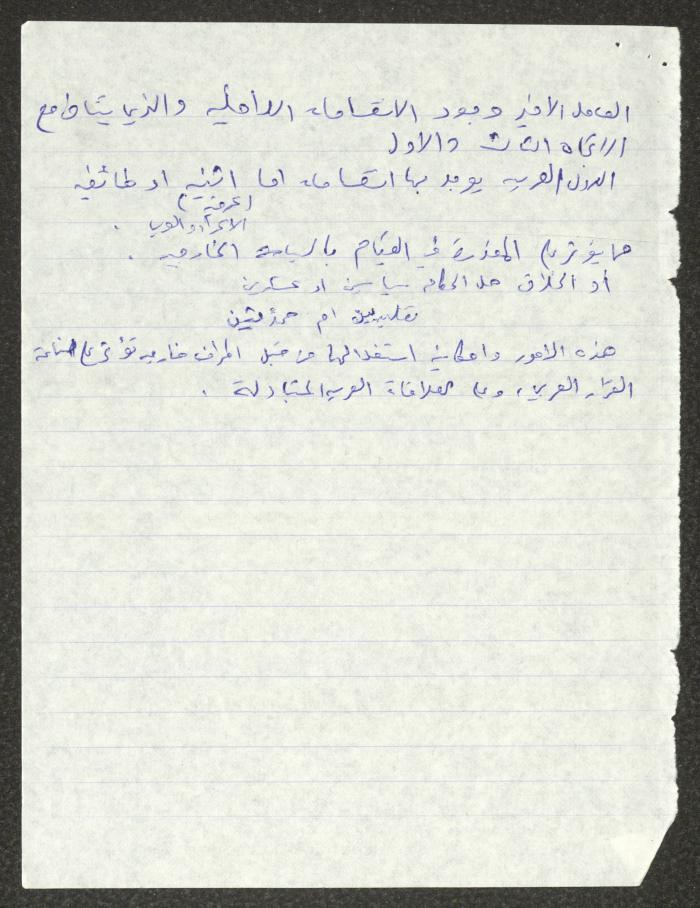 العامل الاخير وجود الانقسامات الداخليه والذي يتقاطع مع
الاتجاه الثالث والاول
الدول العربيه يوجد بها انقسامات اما اثنيه او طائفيه
(عرقيه)
الاكراد والعرب .
مما يؤثر على المقدرة في القيام بالسياسة الخارجيه .
أو اختلاف هل الحكام سياسين او عسكرين
تقليديين ام حدثيين
هذه الامور وامكانية استغلالها من قبل اطراف خارجيه تؤثر على صناعة
القرار العربي، وعلى العلاقات العربيه المتبادلة .